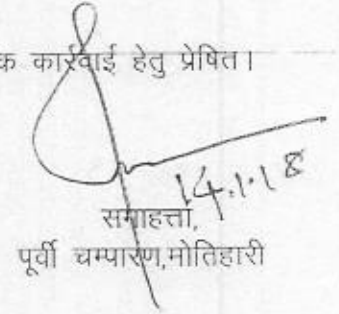 क कार्रवाई हेतु प्रेषित।
14.1.18
समाहर्त्ता,
पूर्वी चम्पारण,मोतिहारी